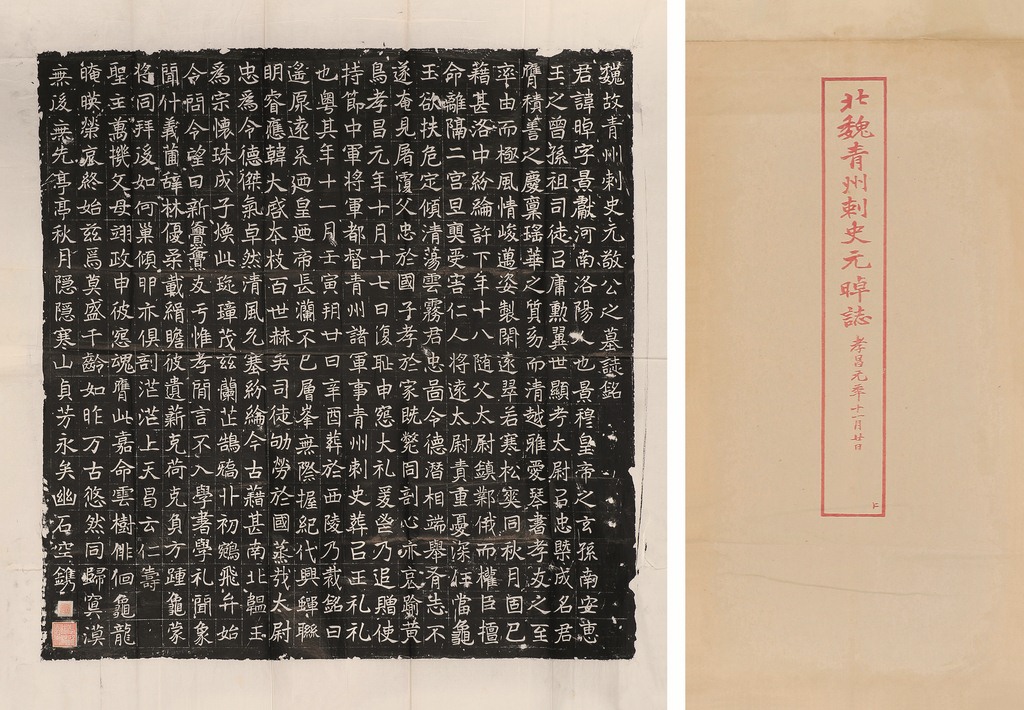 魏故青州刺史元敬公之墓誌銘
君諱晫字景獻河南洛陽人也景穆皇帝之玄孫南安惠
王之曾孫祖司徒㠯庸勳翼世顯考太尉㠯忠槩成名君
膺積善之慶稟瑤華之質易而清越雅愛琴書孝友之至
率由而極風情峻邁姿製閑遠翠若寒松奭同秋月固已
藉甚洛中紛綸許下年十八随父太尉鎮鄴俄而權臣擅
命離隔二宮旦奭受害仁人將遠太尉責重憂深任當龜
玉欲扶危定傾清蕩雲霧君忠啚令德潜相端舉脊志不
遂奄見屠覆父忠於國子孝於家旣斃同剖心亦哀踰黃
鳥孝昌元年十月十七日復耻申寃大礼爰啓乃追贈使
持節中軍將軍都督青州諸軍事青州刺史葬㠯王礼礼
也粵其年十一月壬寅朔廿日辛酉葬於西陵乃裁銘曰
遙原遠系迺皇迺帝長瀾不已層峯無際握紀代興蟬聯
明睿應韓大啓本枝百世赫矣司徒劬勞於國蒸哉太尉
忠爲令德傑氣卓然清風允塞紛綸今古藉甚南北韞玉
爲宗懷珠成子煥此琁璋茂玆蘭芷鵠鴻卝初鵷飛弁始
令問令望曰新友于惟孝閒言不入學書學礼聞象
聞什義菌辭林優柔載緝瞻彼遺薪克荷克負方踵龜蒙
將同拜後如何巢傾卵亦俱剖茫茫上天昌云仁壽
聖主萬機文母翊政申彼寃魂膺此嘉命雲樹俳佪龜龍
晻映榮哀終始玆焉莫盛千齡如昨万古悠然同歸寞漠
無後無先亭亭秋月隱隱寒山貞芳永矣幽石空鐫
北魏青州刺史元晫誌 孝昌元年十一月廿日